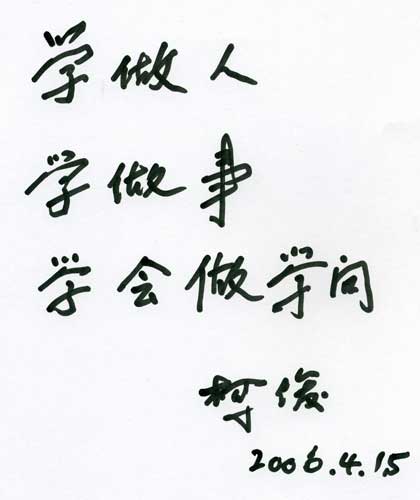 学做人
学做事
学会做学问
柯俊
2006.4.15